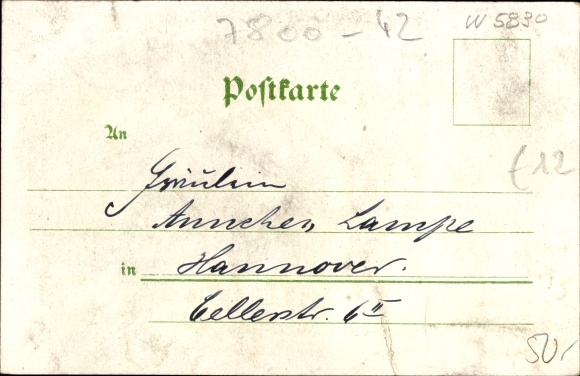 7800-42
W 5830
Postkarte
An
€12
Fräulein
Annchen Lampe
in Hannover.
Cellerstr. 6 II
50,-